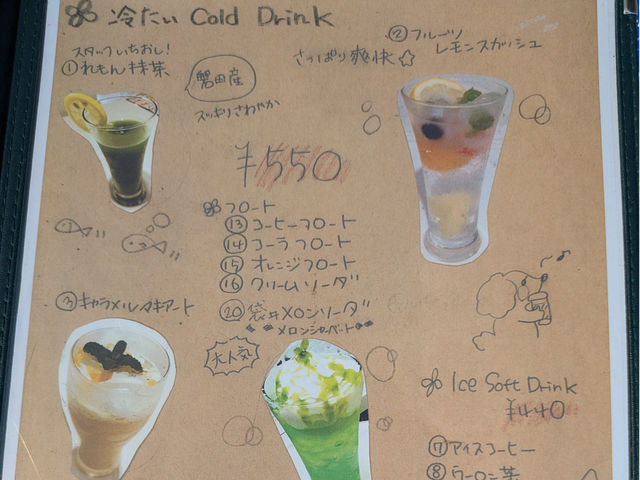 冷たい Cold Drink
スタッフいちおし!
①れもん抹茶
磐田産
スッキリさわやか
さっぱり爽快☆
②フルーツ
レモンスカッシュ
¥550
フロート
⑬コーヒーフロート
⑭コーラフロート
⑮オレンジフロート
⑯クリームソーダ
⑳袋井メロンソーダ
メロンシャーベット
大人気
③キャラメルマキアート
Ice Soft Drink
¥440
⑦アイスコーヒー
⑧ウーロン茶